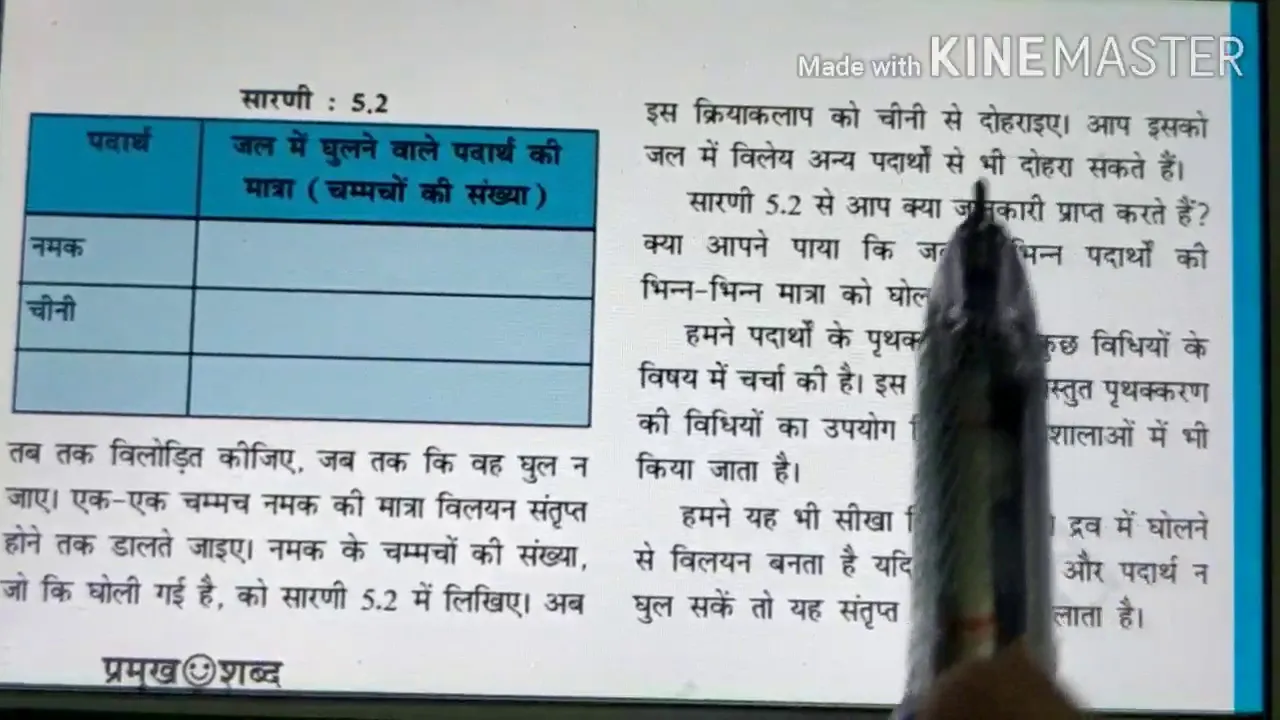 Made with KINEMASTER
सारणी : 5.2
पदार्थ
जल में घुलने वाले पदार्थ की
मात्रा ( चम्मचों की संख्या )
नमक
चीनी
तब तक विलोड़ित कीजिए, जब तक कि वह घुल न
जाए। एक-एक चम्मच नमक की मात्रा विलयन संतृप्त
होने तक डालते जाइए। नमक के चम्मचों की संख्या,
जो कि घोली गई है, को सारणी 5.2 में लिखिए। अब
प्रमुख शब्द
इस क्रियाकलाप को चीनी से दोहराइए। आप इसको
जल में विलेय अन्य पदार्थों से भी दोहरा सकते हैं।
सारणी 5.2 से आप क्या जानकारी प्राप्त करते हैं?
क्या आपने पाया कि पदार्थों की
भिन्न-भिन्न मात्रा को
हमने पदार्थों के कुछ विधियों के
विषय में चर्चा की है। इस पृथक्करण
की विधियों का उपयोग में भी
किया जाता है।
हमने यह भी सीखा द्रव में घोलने
से विलयन बनता है यदि और पदार्थ न
घुल सकें तो यह संतृप्त है।